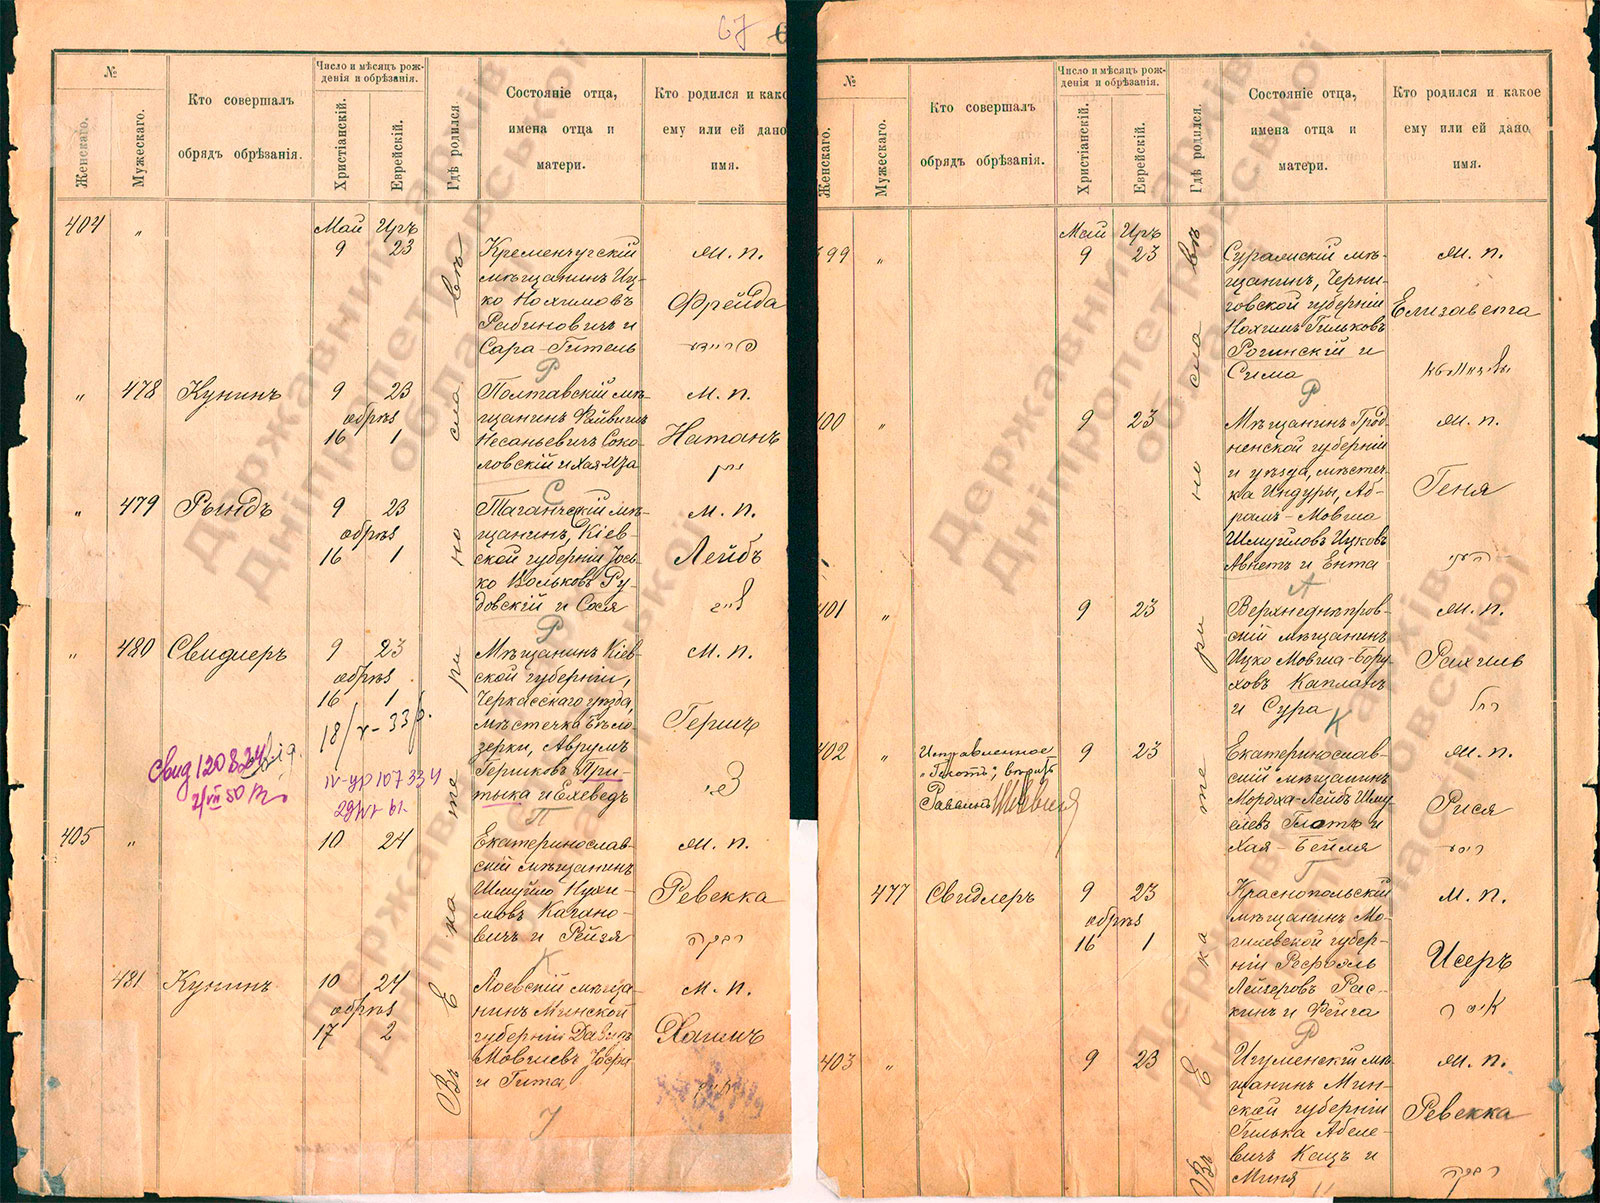 67
№
Женскаго.
Мужескаго.
Кто совершалъ
обрядъ обрѣзанія.
Число и мѣсяцъ рож-
денія и обрѣзанія.
Христіанскій.
Еврейскій.
Гдѣ родился
Состояніе отца,
имена отца и
матери.
Кто родился и како
ему или ей дано
имя.
Въ Екатеринославѣ
404 „
Май Иръ
9 23
Кременчугскій
мѣщанинъ Иц-
ко Нохимовъ
Рабиновичъ и
Сара-Гитель
Р
м. п.
Фрейда
„ 478 Кунинъ
9 23
обрѣз
16 1
Полтавскій мѣ-
щанинъ Файвишъ
Несаньевичъ Соко-
ловскій и Хая-Иза
С
м. п.
Натанъ
„ 479 Рындъ
9 23
обрѣз
16 1
Таганчскій мѣ-
щанинъ, Кіев-
ской губерніи Іось-
ко Вольковъ Ру-
довскій и Сося
Р
м. п.
Лейбъ
„ 480 Свидлеръ
9 23
обрѣз
16 1
18/V-33р.
Свид 120824
Мѣщанинъ Кіев-
ской губерніи,
Черкасскаго уѣзда,
мѣстечка Бѣло-
зерки, Аврумъ
Гершковъ При-
тыка и Ехеведъ
П
м. п.
Гершъ
405 „
10 24
Екатеринослав-
скій мѣщанинъ
Шмуйло Нухи-
мовъ Кагано-
вичъ и Рейзя
К
м. п.
Ревекка
רבקה
481 Кунинъ
10 24
обрѣз
17 2
Лоевскій мѣща-
нинъ Минской
губерніи Давидъ
Мовшевъ
и Гита
м. п.
Хаимъ
חיים
№
Женскаго.
Мужескаго.
Кто совершалъ
обрядъ обрѣзанія.
Число и мѣсяцъ рож-
денія и обрѣзанія.
Христіанскій.
Еврейскій.
Гдѣ родился.
Состояніе отца,
имена отца и
матери.
Кто родился и какое
ему или ей дано
имя.
Въ Екатеринославѣ
399 „
Май Иръ
9 23
Суражскій мѣ-
щанинъ, Черни-
говской губерніи
Нохимъ Гильковъ
Рогинскій и
Сима
Р
м. п.
Елизавета
400 „
9 23
Мѣщанинъ Грод-
ненской губерніи
и уѣзда, мѣстеч-
ка Индуры, Аб-
рамъ-Мовша
Шмуйловъ Ицковъ
и Ента
А
м. п.
Геня
401 „
9 23
Верхнеднѣпров-
скій мѣщанинъ
Ицко Мовша-Бору-
ховъ Капланъ
и Сура
К
м. п.
Рахиль
רחל
402 Исправленное
„Глотъ", вѣрить
Раввинъ
9 23
Екатеринослав-
скій мѣщанинъ
Мордха-Лейбъ Шму-
елевъ Глотъ и
Хая-Бейля
Г
м. п.
Рися
477 Свидлеръ
9 23
обрѣз
16 1
Краснопольскій
мѣщанинъ Мо-
гилевской губер-
ніи Рефоэль
Лейзеровъ Рас-
кинъ и Фейга
Р
м. п.
Исеръ
403 „
9 23
Игуменскій мѣ-
щанинъ Мин-
ской губерніи
Гилька Абеле-
вичъ Кацъ и
Миня
м. п.
Ревекка
רבקה
Державний архів
Дніпропетровської
області